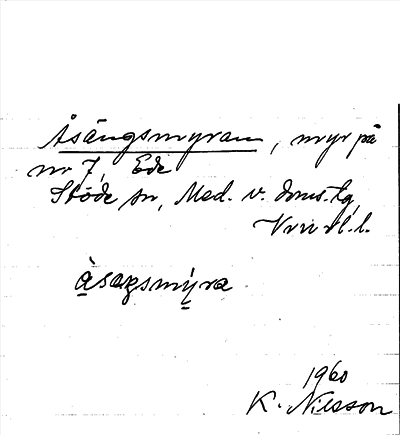 Åsängsmyran, myr på
nr 7, Ede
Stöde sn, Med. v. doms.lg
l.l.
àsaŋsmýra
1960
K. Nilsson